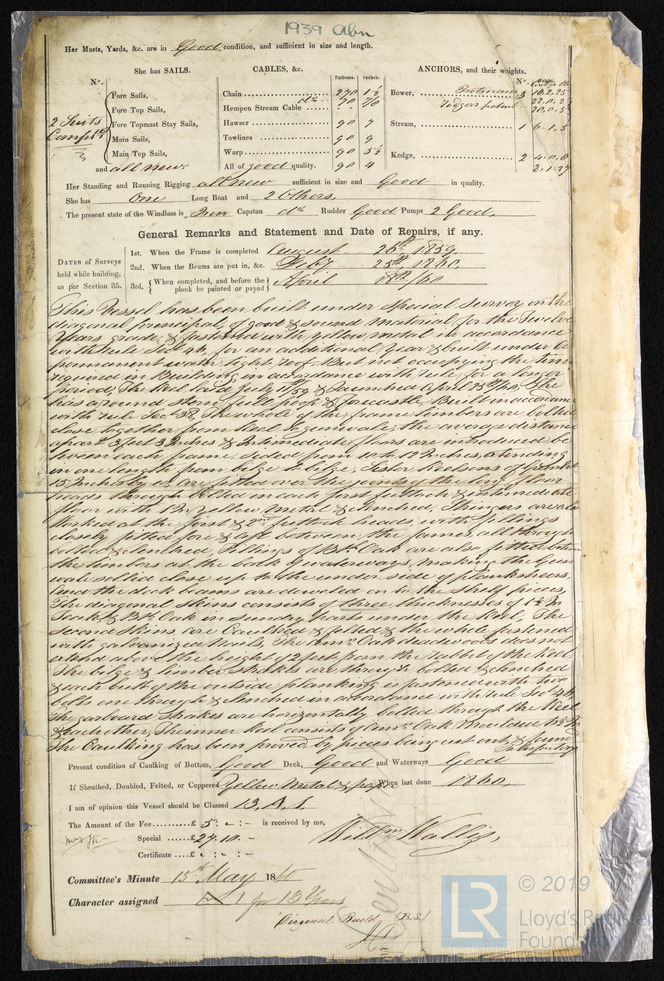 1939 Abn
Her Masts, Yards, &c. are in Good condition, and sufficient in size and length.
She has SAILS.
CABLES, &c.
Fathoms. Inches.
ANCHORS, and their weights.
Nº.
Nº.
2 Suits Complete
Fore Sails,
Fore Top Sails,
Fore Topmast Stay Sails,
Main Sails,
Main Top Sails,
and all new
Chain 270 1½
do 70 7/8
Hempen Stream Cable
Hawser 90 7
Towlines 90 9
Warp 90 5½
All of good quality. 90 4
Bower, 3 18.2.25
22.0.2
20.0.5
Stream, 1 6.1.5
Kedge, 2 4.0.8
2.1.27
Her Standing and Running Rigging all new sufficient in size and Good in quality.
She has One Long Boat and 2 Others.
The present state of the Windlass is Iron Capstan do Rudder Good Pumps 2 Good.
General Remarks and Statement and Date of Repairs, if any.
DATES of Surveys
held while building,
as per Section 35.
1st. When the Frame is completed August 26th 1859
2nd. When the Beams are put in, &c. Feby 25th 1860
3rd. When completed, and before the plank be painted or payed April 18th/60
This Vessel has been built under Special Survey on the
diagonal principal, of good & sound material for the Twelve
Years grade, & fastened with yellow metal in accordance
with rule Sec 44, for an additional Year & built under a
permanent water tight roof, but not occupying the time
required in Building in accordance with rule for a longer
Period, The Keel laid July 11th 59 & launched April 25th 60. She
has a round stern, full poop & forecastle Built in accordance
with rule Sec 38. The whole of the frame timbers are bolted
close together from Keel to gunwale, the average distance
apart 3 feet 3 Inches & Intermediate floors are introduced be
tween each frame, sided from 10 to 12 Inches, extending
in one length from bilge to bilge, Sister Keelsons of Greenheart
15 Inches by are fitted over the joints of the long floor
heads through bolted in each first futtock & intermediate
floor with 1⅛ yellow Metal & clenched, Stringers are also
worked at the first & 2nd futtock heads with fillings
closely fitted fore & aft between the frames all through
bolted & clenched, Fillings of Bsh Oak are also fitted between
the timbers at the back of waterways making the Gun
wale solid close up to the under side of planksheers,
and the deck beams are dovetailed on to the shelf pieces,
The diagonal Skins consists of three thicknesses of 1½ In
Teak & Bsh Oak in Sundry parts under the Keel, The
Second Skins are Caulked & felted & the whole fastened
with galvanized Nails, The Amn Oak dead wood does not
extend above the height of 2 feet from the rabbet of the Keel
The bilge & limber strakes are through bolted & clenched
& each butt of the outside planking is fastened with two
bolts one through & clenched in accordance with rule Sec 44
The garboard Strakes are horizontally bolted through the Keel
& each other, The inner Keel consists of Amn Oak moulded
The Caulking has been proved by pieces being cut out, & found
Satisfactory
Present condition of Caulking of Bottom, Good Deck, Good and Waterways Good
If Sheathed, Doubled, Felted, or Coppered Yellow Metal & When last done 1860.
I am of opinion this Vessel should be Classed 13 A 1
The Amount of the Fee £ 5 : - : - is received by me,
Special £ 27.10. -
Certificate £ - : - : -
Willm Wallis,
Committee's Minute 15th May 1860
Character assigned A 1 for 13 Years
Diagonal Build (B.S.)
LR
© 2019
Lloyd's Register
Foundation